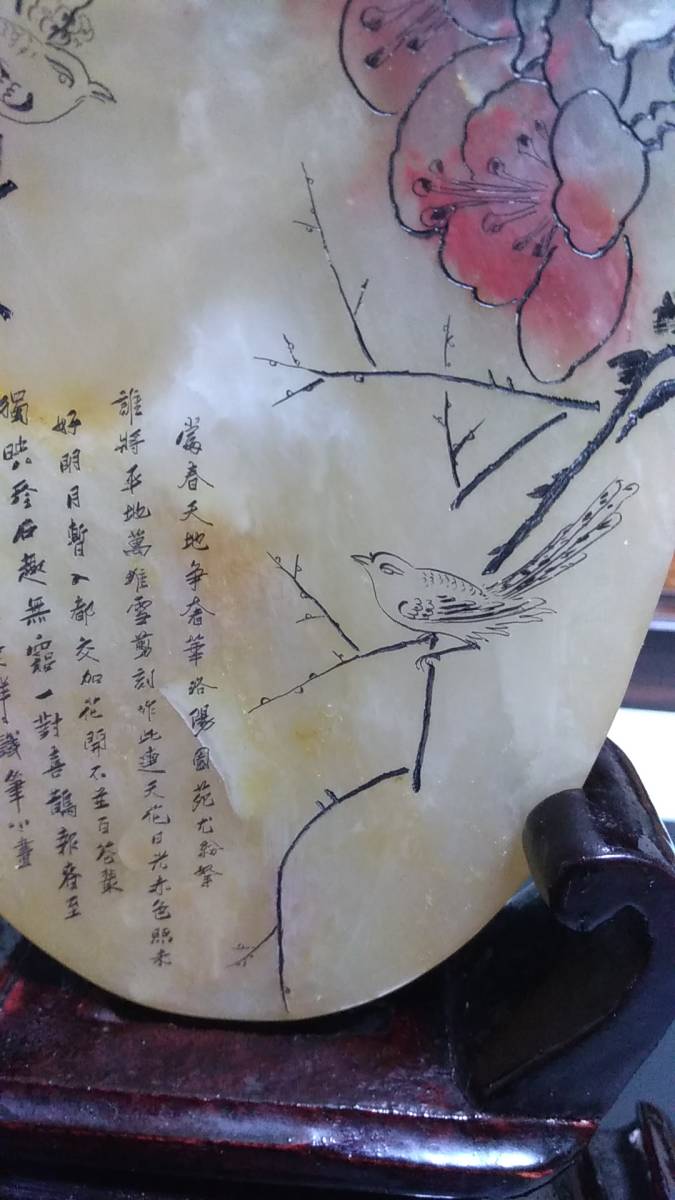 當春天地争奢華洛陽園苑尤紛拏
誰將平地萬堆雪剪刻作此連天花日光赤色照未
好明月暫入都交加花開不至百花蘂
獨映發石趣無窮一對喜鵲報春至
筆小畫